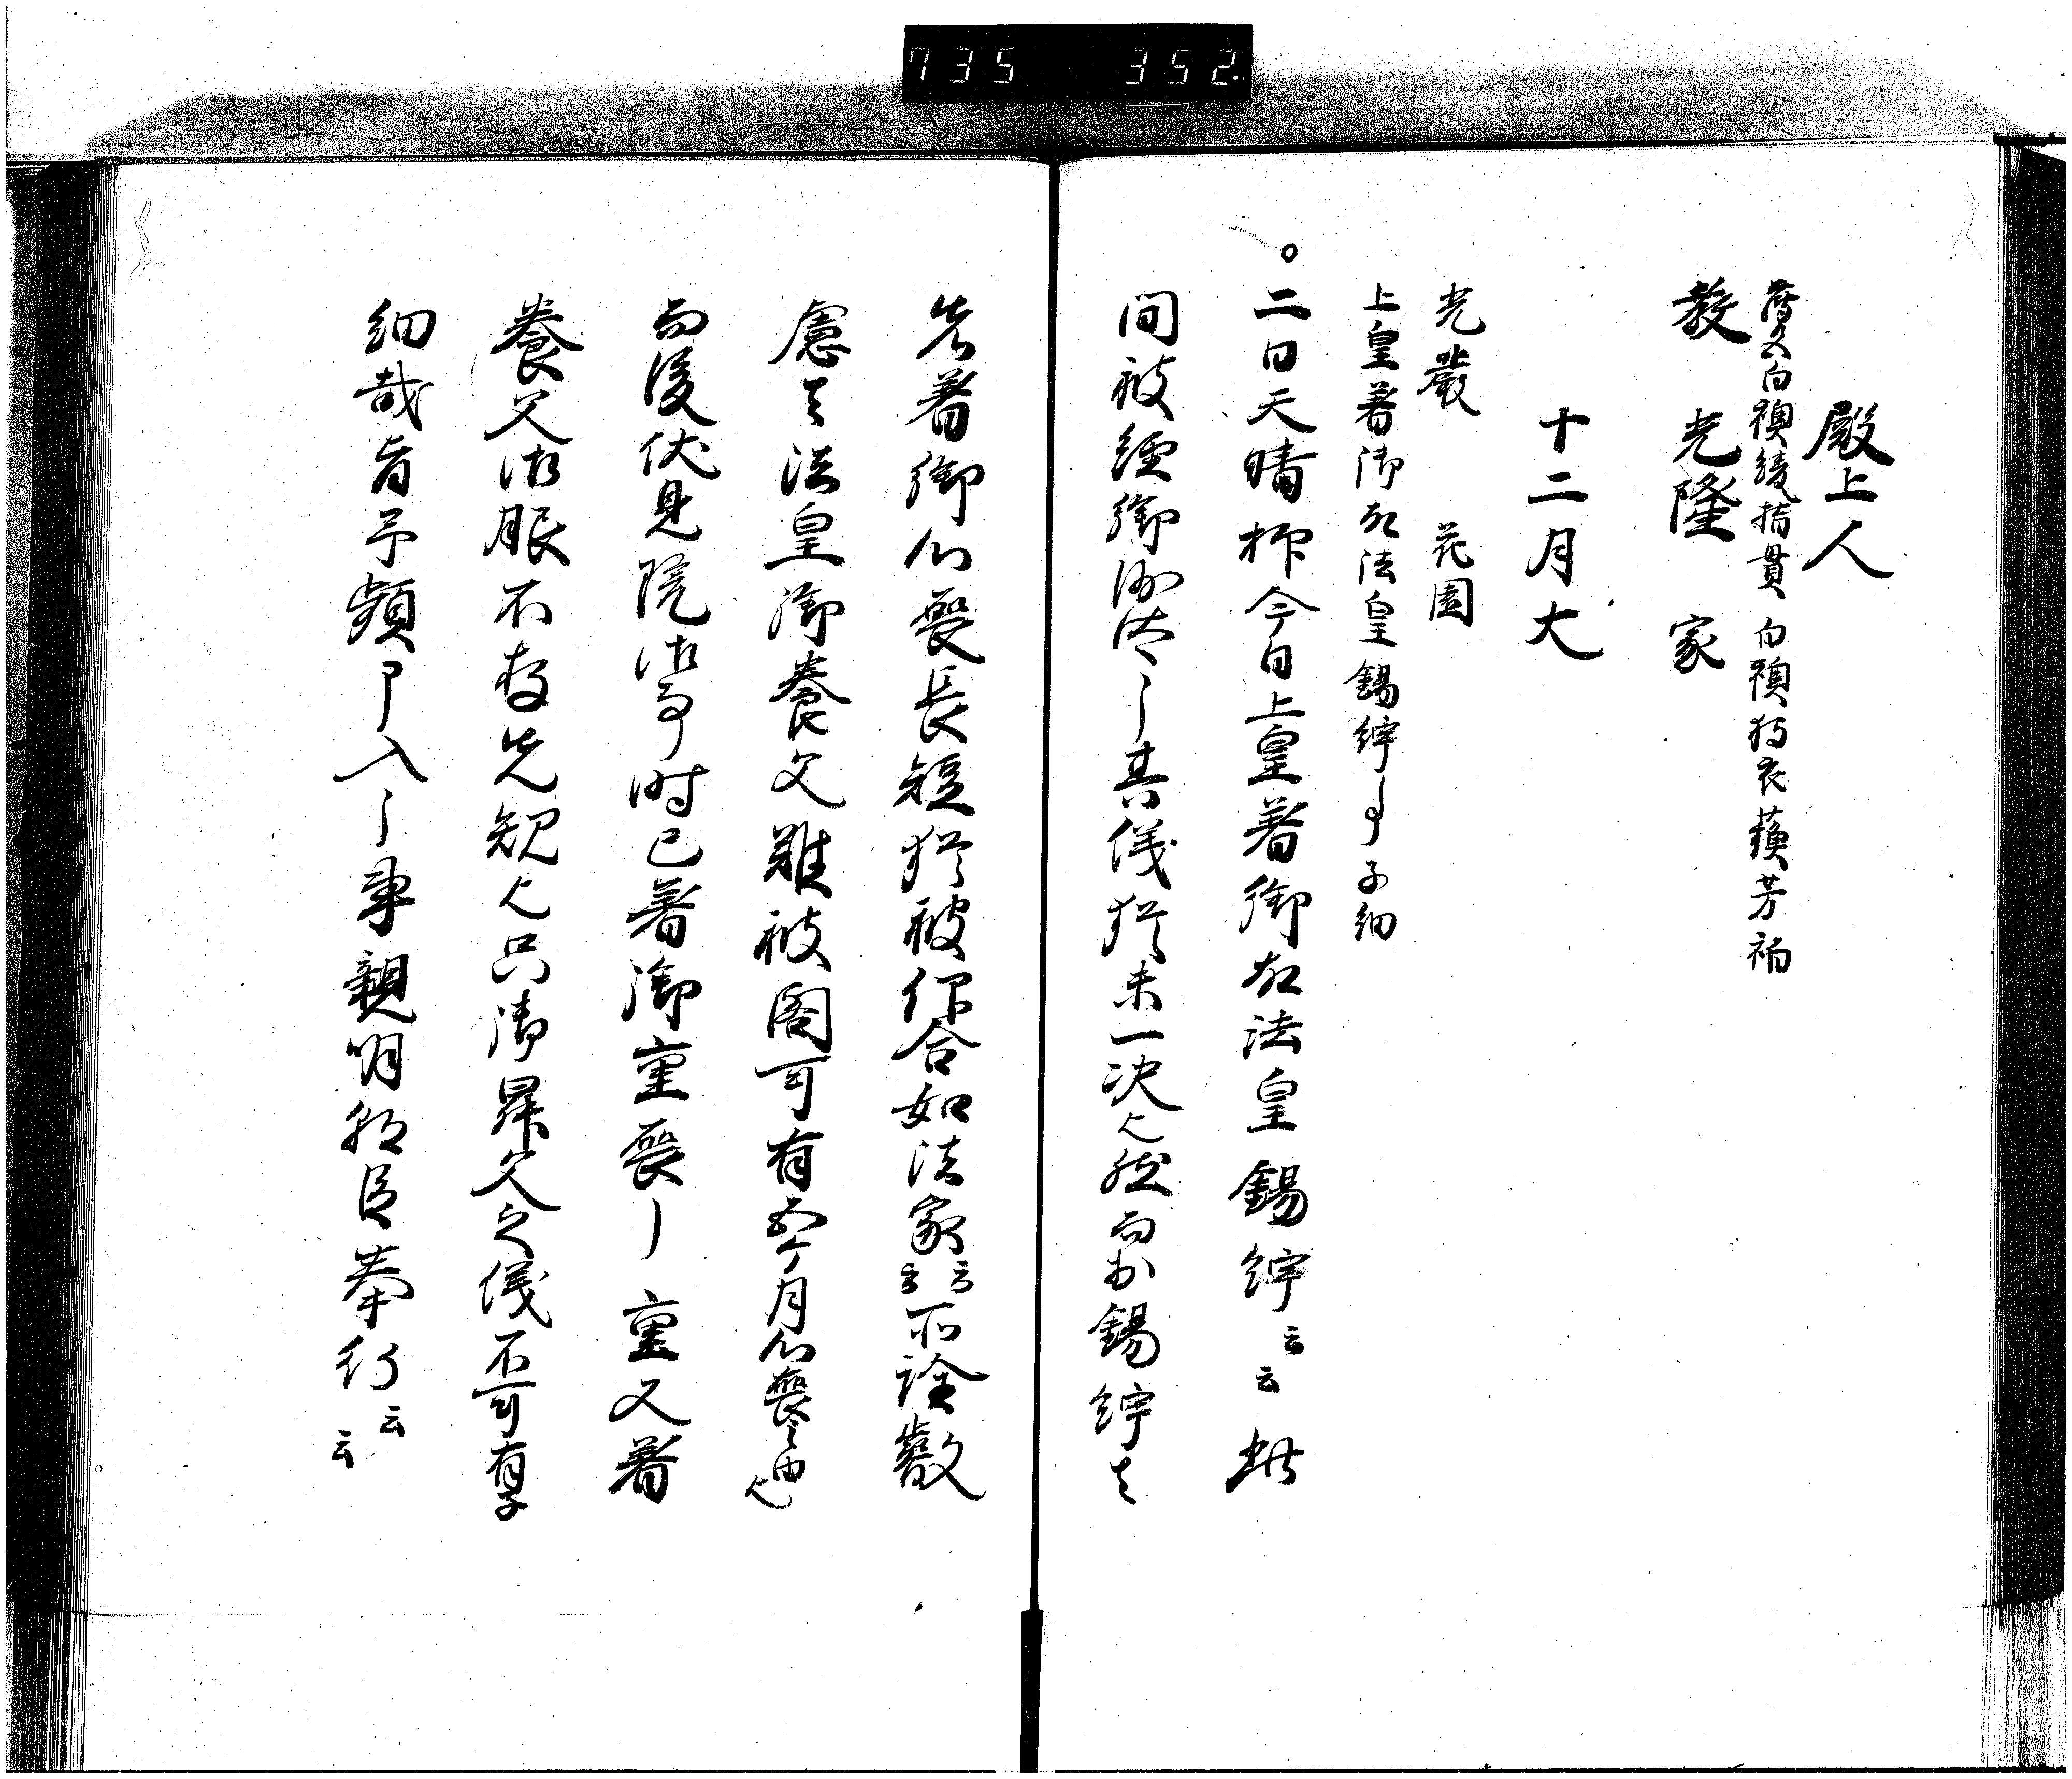 735 352
殿上人
薄色白襖綾指貫 白襖狩衣蘇芳袙
教 光隆 家
十二月大
光嚴 花園
上皇著御故法皇錫紵事子細
二日天晴抑今日上皇著御故法皇錫紵云云此
間被經御沙汰之其儀猶未一決也然而於錫紵者
先著御心喪長短猶被仰合如法家云云所詮叡
慮者法皇御養父難被閣可有五ケ月心喪之由也
而後伏見院御事時已著御重喪之重又著
養父御服不存先規也只御昇父之儀不可有
細哉旨予頻申入之事親明朝臣奉行云云